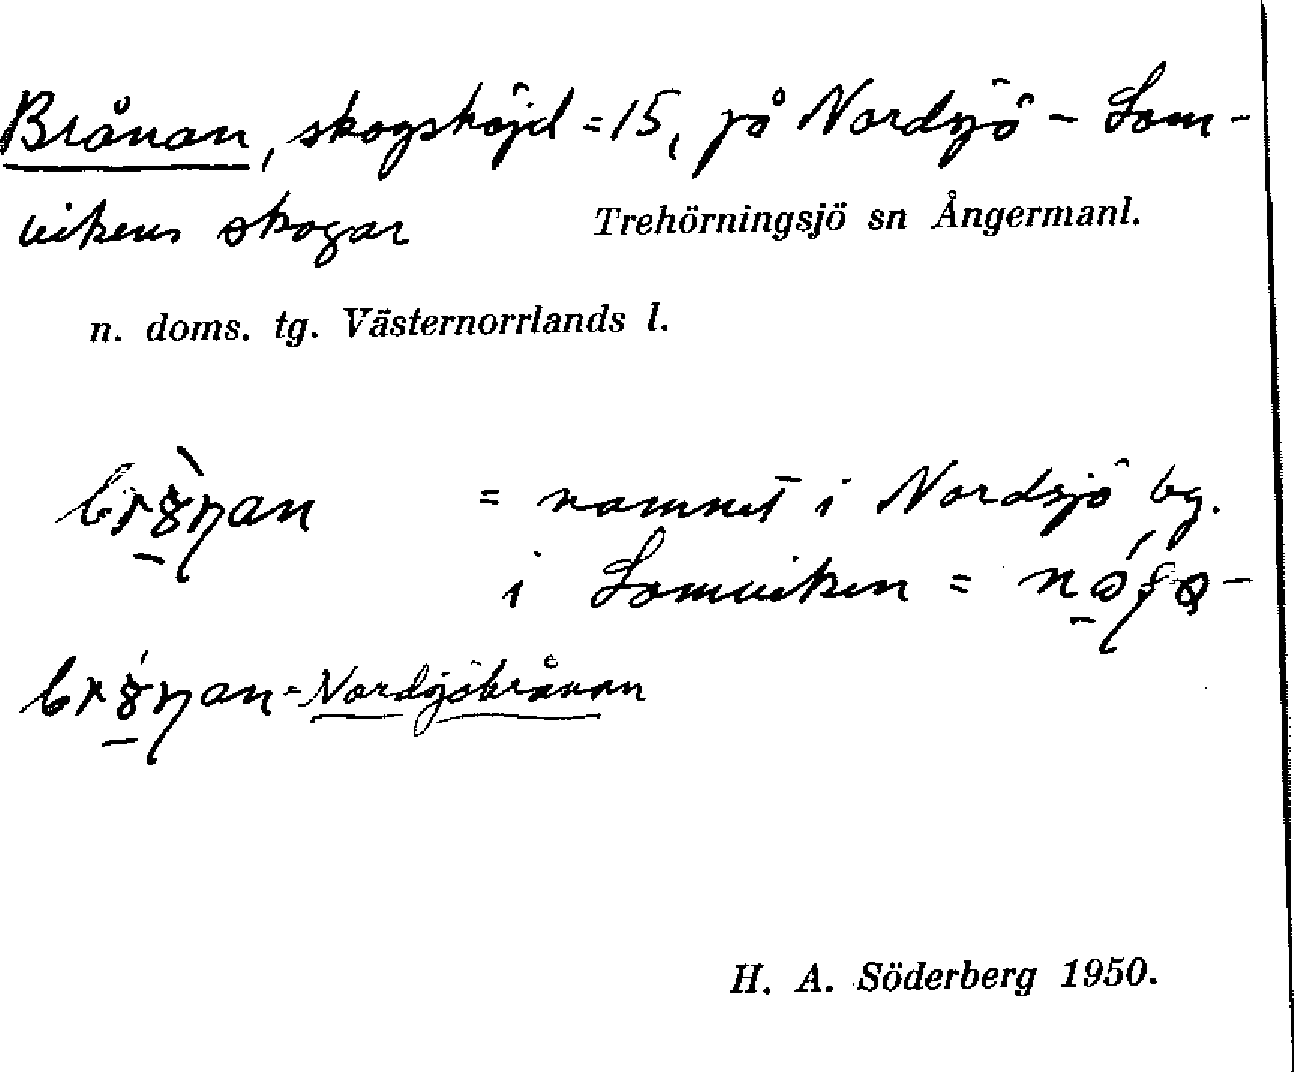 Brånan, skogshöjd = 15, på Nordsjö - Lom-
vikens skogar Trehörningsjö sn Ångermanl.
n. doms. tg. Västernorrlands l.
= namnet i Nordsjö bg.
i Lomviken =
- Nordsjöbrånan
H. A. Söderberg 1950.